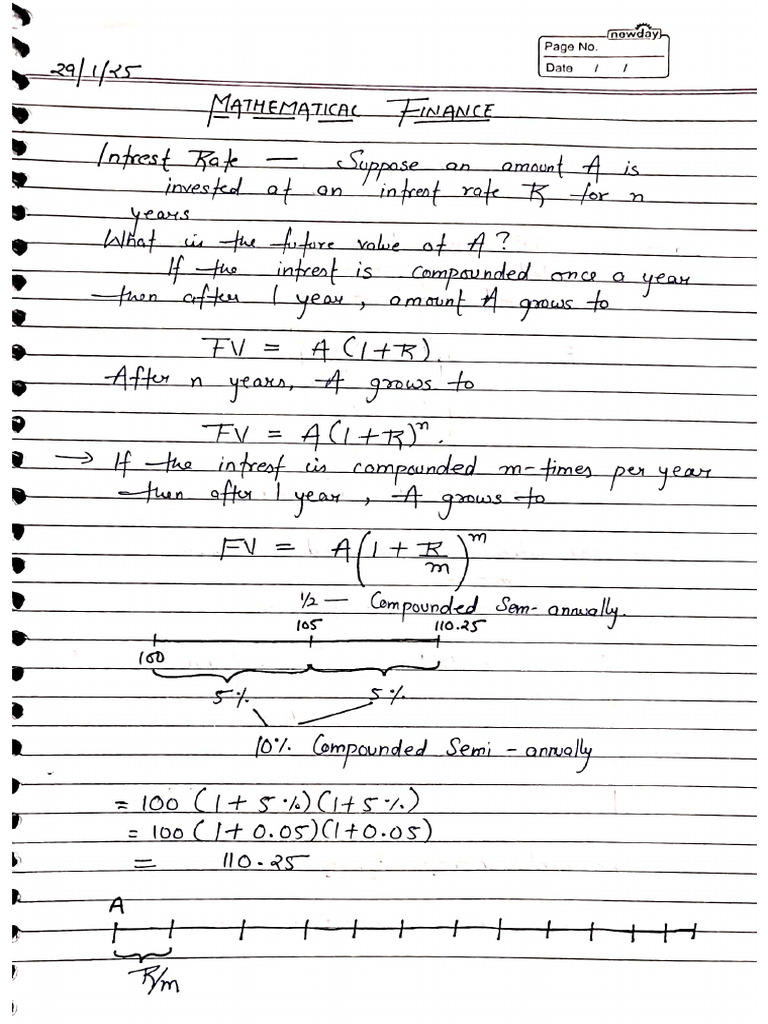 newday
Page No.
Date / /
29/1/25
MATHEMATICAL FINANCE
Intrest Rate — Suppose an amount A is
invested at an intrest rate R for n
years
What is the future value of A?
If the intrest is compounded once a year
then after 1 year, amount A grows to
FV = A (1+R).
After n years, A grows to
FV = A(1+R)^n.
→ If the intrest is compounded m-times per year
then after 1 year, A grows to
FV = A(1 + R/m)^m
1/2 — Compounded Sem-annually.
105 110.25
100
5% 5%
10% Compounded Semi-annually
= 100 (1+5%)(1+5%)
= 100 (1+0.05)(1+0.05)
= 110.25
A
R/m